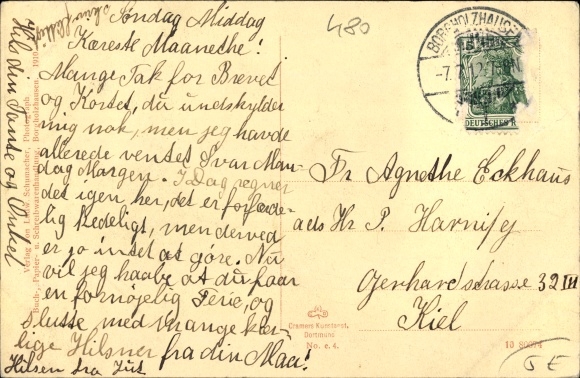 Søndag Middag
Kæreste Maanethe!
Mange Tak for Brevet
og Kortet, du undskylder
mig nok, men jeg havde
allerede ventet Svar Man-
dag Morgen. I Dag regner
det igen her, det er forfærde-
lig kedeligt, men derved
er jo intet at göre. Nu
vil jeg haabe at du faar
en fornøjelig Ferie, og
slutte med mange kær-
lige Hilsner fra din Maa!
Hilsen fra
Hils din Tante og Onkel
Verlag von Schumacher, Photograph
Buch-, Papier- u. Schreibwarenhandlung, Borgholzhausen. 1910
480
BORGHOLZHAUSEN
-7.
DEUTSCHES R
Fr Agnethe Eckhaus
ads Hr P. Harnisf
Gerhardstrasse 32 III
Kiel
Cramers Kunstanst.
Dortmund
No. e. 4.
10 80074
5 E